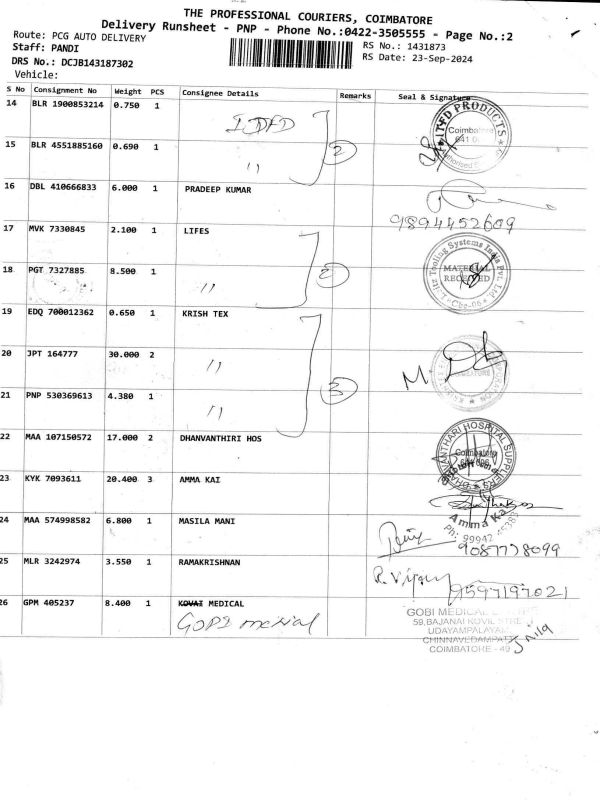 THE PROFESSIONAL COURIERS, COIMBATORE
Delivery Runsheet - PNP - Phone No.:0422-3505555 - Page No.:2
Route: PCG AUTO DELIVERY
RS No.: 1431873
Staff: PANDI
RS Date: 23-Sep-2024
DRS No.: DCJB143187302
Vehicle:
S No Consignment No Weight PCS Consignee Details Remarks Seal & Signature
14 BLR 1900853214 0.750 1
15 BLR 4551885160 0.690 1 "
2
16 DBL 410666833 6.000 1 PRADEEP KUMAR
9894452609
17 MVK 7330845 2.100 1 LIFES
18 PGT 7327885 8.500 1 "
2
MATERIAL RECEIVED
19 EDQ 700012362 0.650 1 KRISH TEX
20 JPT 164777 30.000 2 "
3
21 PNP 530369613 4.380 1 "
22 MAA 107150572 17.000 2 DHANVANTHIRI HOS
DHANVANTHARI HOSPITAL SUPPLIERS
Coimbatore
23 KYK 7093611 20.400 3 AMMA KAI
Amma Kai
24 MAA 574998582 6.800 1 MASILA MANI
9087778099
25 MLR 3242974 3.550 1 RAMAKRISHNAN
9597197021
26 GPM 405237 8.400 1 KOVAI MEDICAL
GOBI medical
GOBI MEDICAL
59, BAJANAI KOVIL STREET
UDAYAMPALAYAM
CHINNAVEDAMPATTI
COIMBATORE - 49